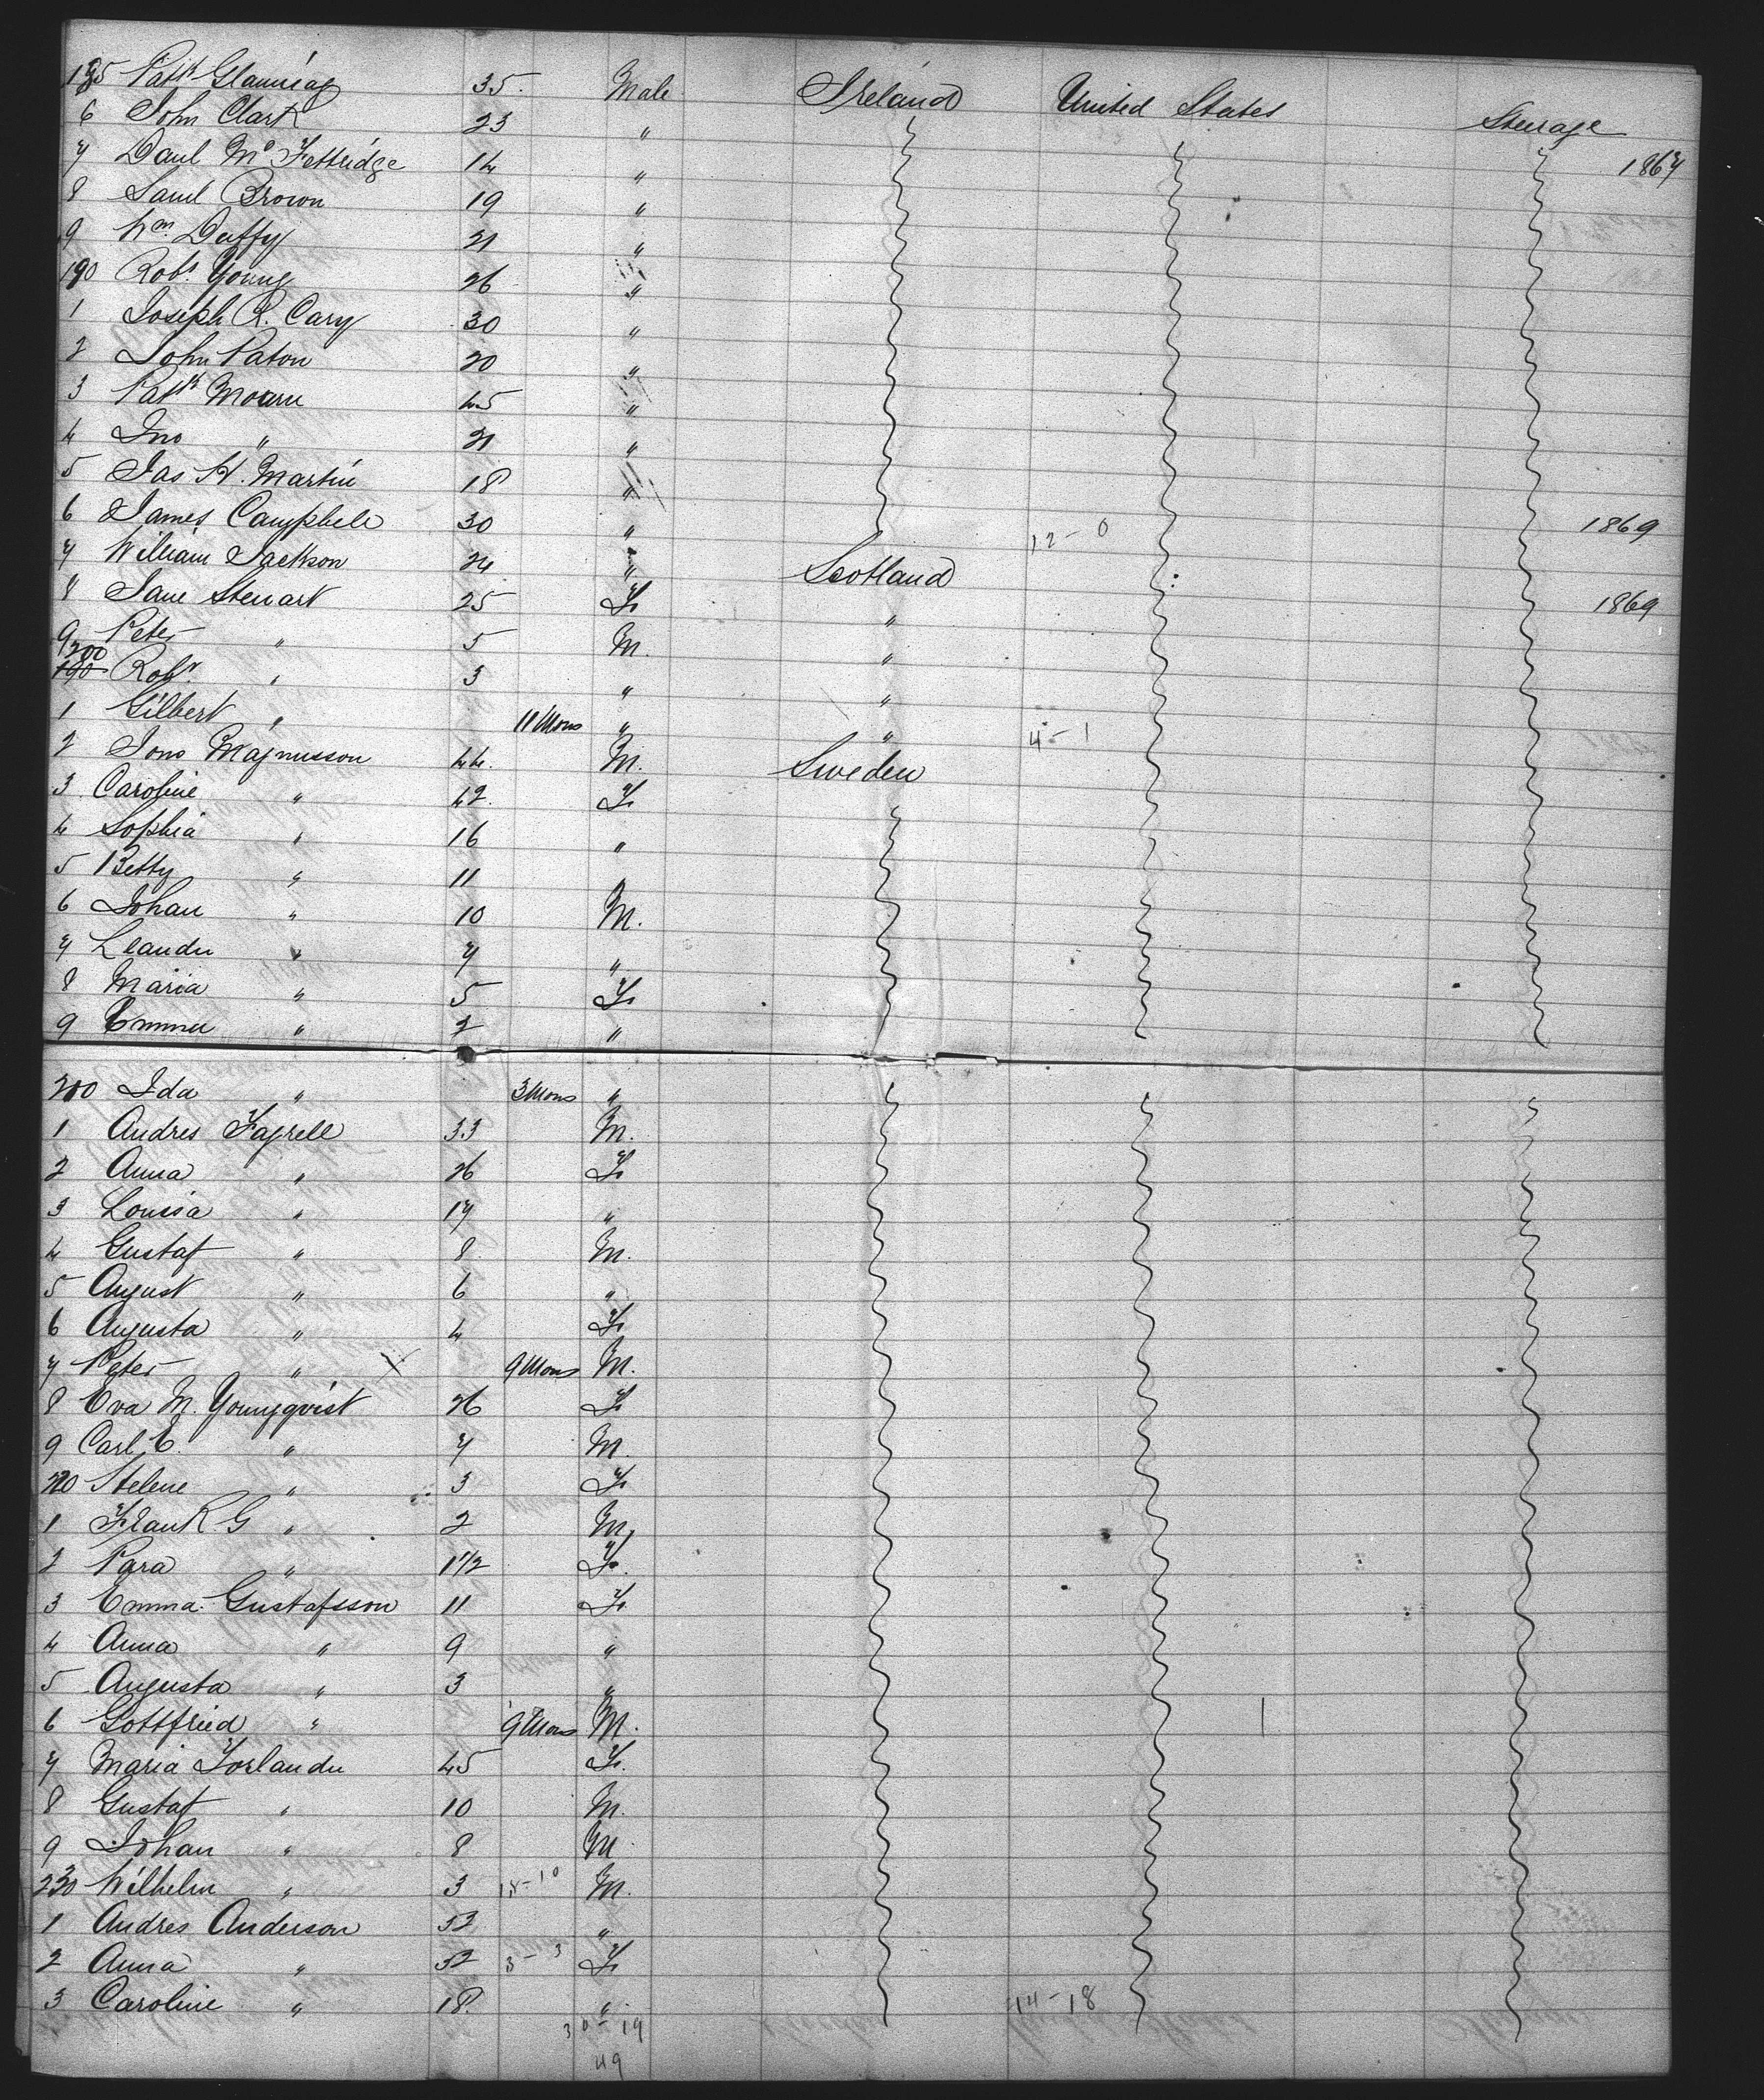 185 Patk Glanniag 35. Male Ireland United States Steerage
6 John Clark 23 "
7 Danl Mc Fettridge 14 " 1867
8 Saml Brown 19 "
9 Wm Duffy 21 "
190 Robt Young 26 "
1 Joseph R. Cary 30 "
2 John Paton 20 "
3 Patk Mourn 45 "
4 Jno " 21 "
5 Jas H. Martin 18 "
6 James Campbell 30 " 12-0 1869
7 William Jackson 24 " Scotland
8 Jane Stewart 25 F. " 1869
9 Peter " 5 M. "
200 Robt " 3 " "
1 Gilbert " 11 Mons " " 4-1
2 Jons Magnusson 44. M. Sweden
3 Caroline " 42. F.
4 Sophia " 16 "
5 Betty " 11 "
6 Johan " 10 M.
7 Leander " 7 "
8 Maria " 5 F.
9 Emma " 2 "
210 Ida " 3 Mons "
1 Andres Fagrell 33 M.
2 Anna " 26 F.
3 Louisa " 17 "
4 Gustaf " 8 M.
5 August " 6 "
6 Augusta " 4 F.
7 Peter " X 9 Mons M.
8 Eva M. Youngqvist 26 F.
9 Carl E. " 7 M.
220 Helene " 3 F.
1 Frank G " 2 M.
2 Para " 1 1/2 F.
3 Emma Gustafsson 11 F.
4 Anna " 9 "
5 Augusta " 3 "
6 Gottfried " 9 Mons M.
7 Maria Forlander 45 F.
8 Gustaf " 10 M.
9 Johan " 8 M
230 Wilhelm " 3 M.
1 Andres Anderson 53 "
2 Anna " 52 3-3 F.
3 Caroline " 18. " 14-18
30-19
49